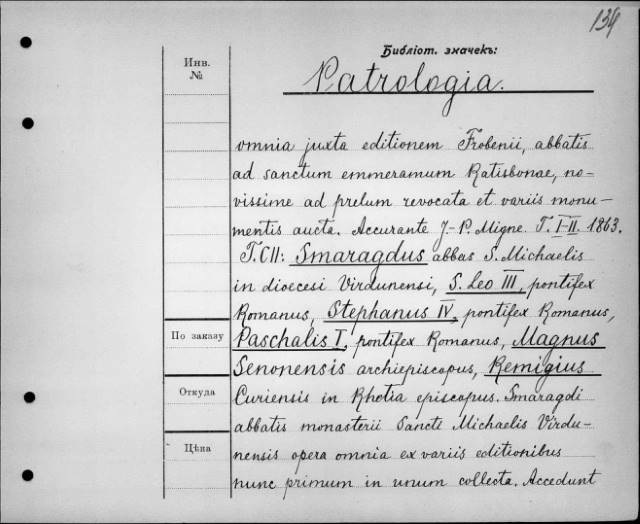 134
Библіот. значекъ:
Инв.
№
Patrologia.
omnia juxta editionem Frobenii, abbatis
ad sanctum emmeramum Ratisbonae, no-
vissime ad prelum revocata et variis monu-
mentis aucta. Accurante J.-P. Migne. T. I-II. 1863.
T. CII: Smaragdus abbas S. Michaelis
in dioecesi Virdunensi, S. Leo III, pontifex
Romanus, Stephanus IV, pontifex Romanus,
По заказу
Paschalis I, pontifex Romanus, Magnus
Senonensis archiepiscopus, Remigius
Откуда
Curiensis in Rhetia episcopus. Smaragdi
abbatis monasterii Sancti Michaelis Virdu-
Цѣна
nensis opera omnia ex variis editionibus
nunc primum in unum collecta. Accedunt